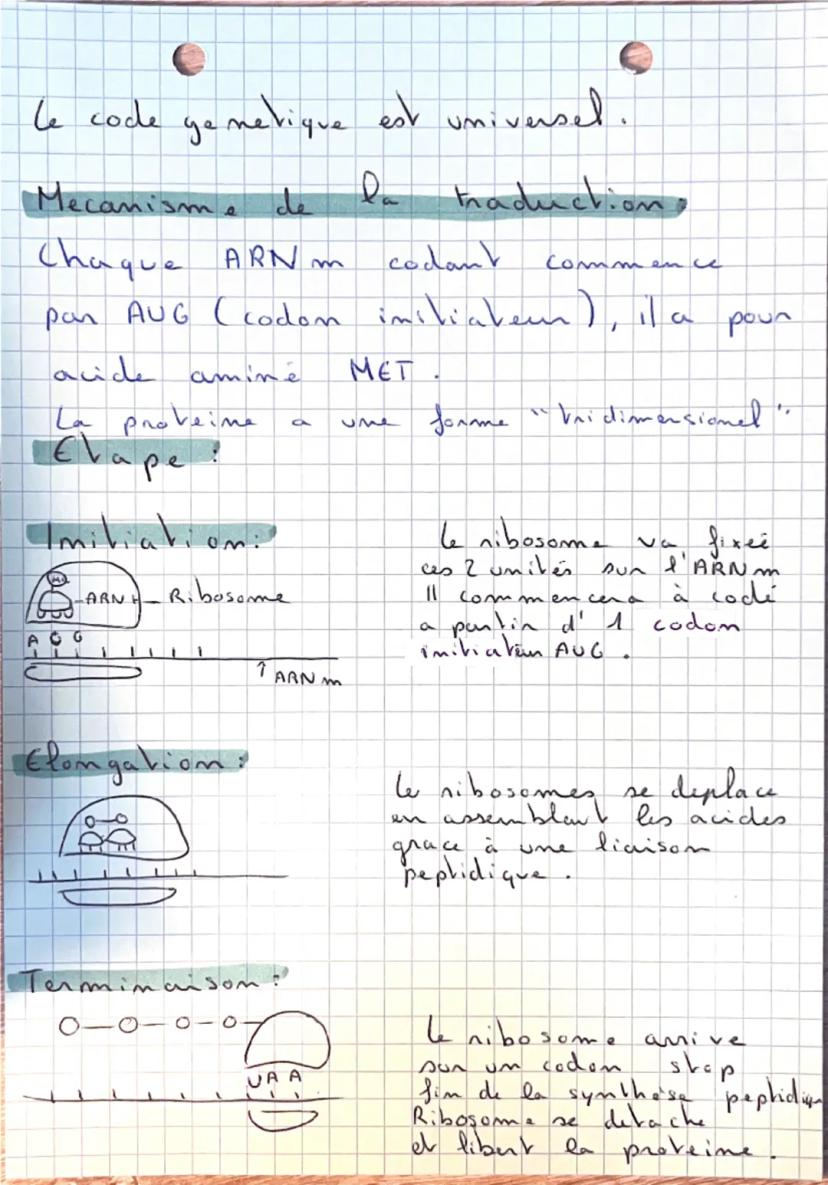 Le code genetique est universel.
Mecanisme de la traduction:
Chaque ARN m codant commence
par AUG (codon initiateur), il a pour
acide aminé MET.
La proteine a une forme "tridimensionel".
Etape :
Initiation:
Le ribosome va fixeé
ces 2 unités sur l'ARN m
Il commencera à codé
a partir d' 1 codon
initiateur AUG.
ARN t Ribosome
A U G
↑ ARN m
Elongation :
Le ribosomes se deplace
en assemblant les acides
grace à une liaison
peptidique.
Terminaison :
UAA
Le ribosome arrive
sur un codon stop
fin de la synthèse peptidique
Ribosome se detache
et libert la proteine.